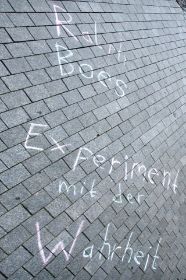 Ralph
Boes
Experiment
mit der
Wahrheit